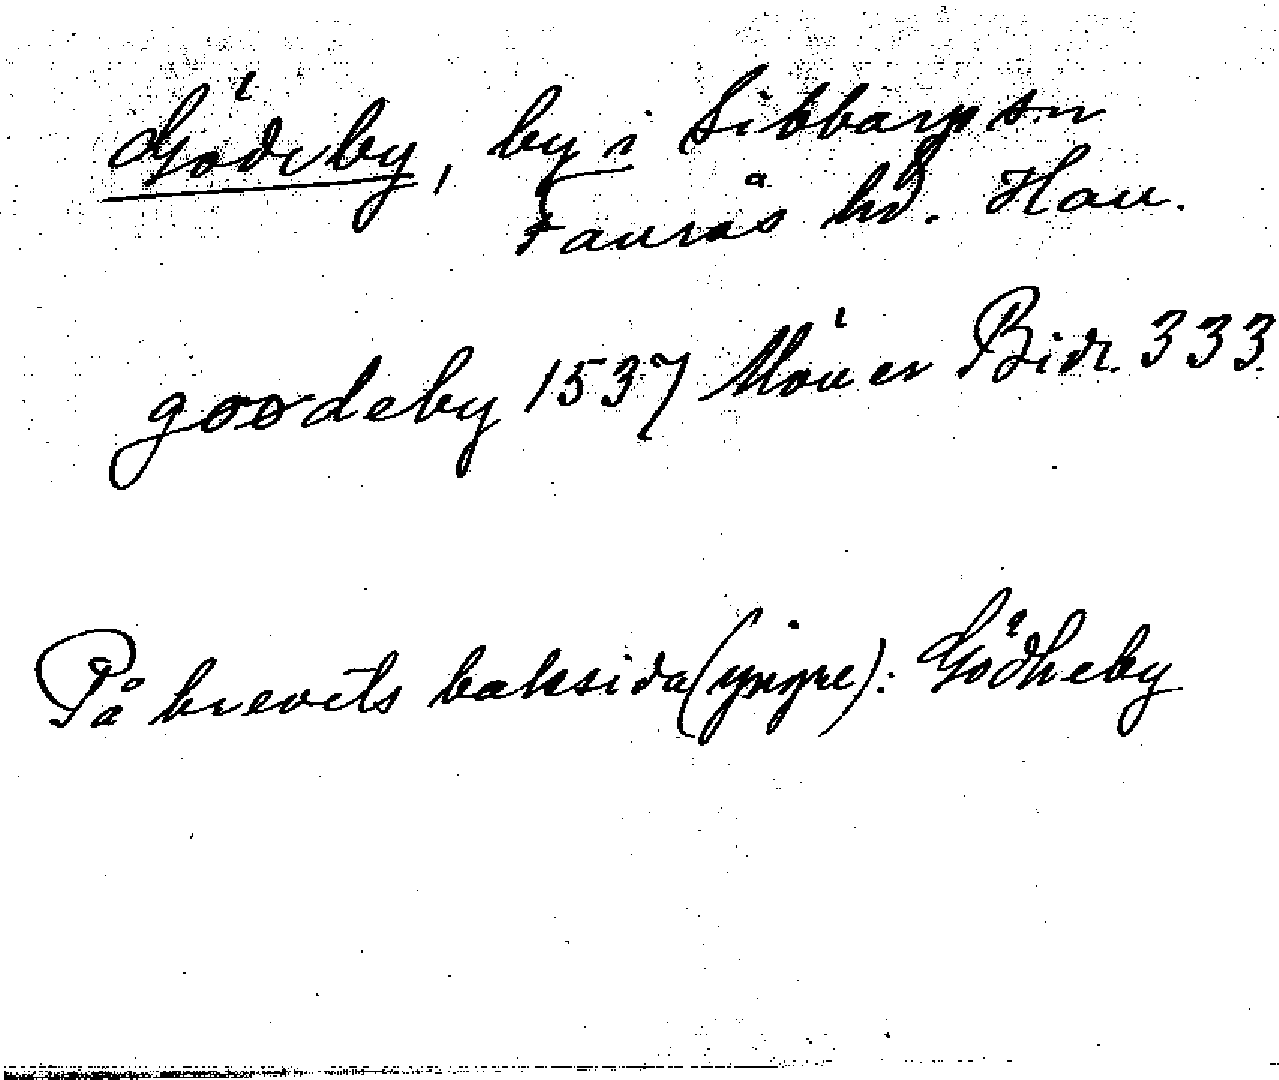 Gödeby, by i Sibbarp sn
Faurås hd. Hall.
goodeby 1537 Möller Bidr. 333.
På brevets baksida (yngre): Gödheby